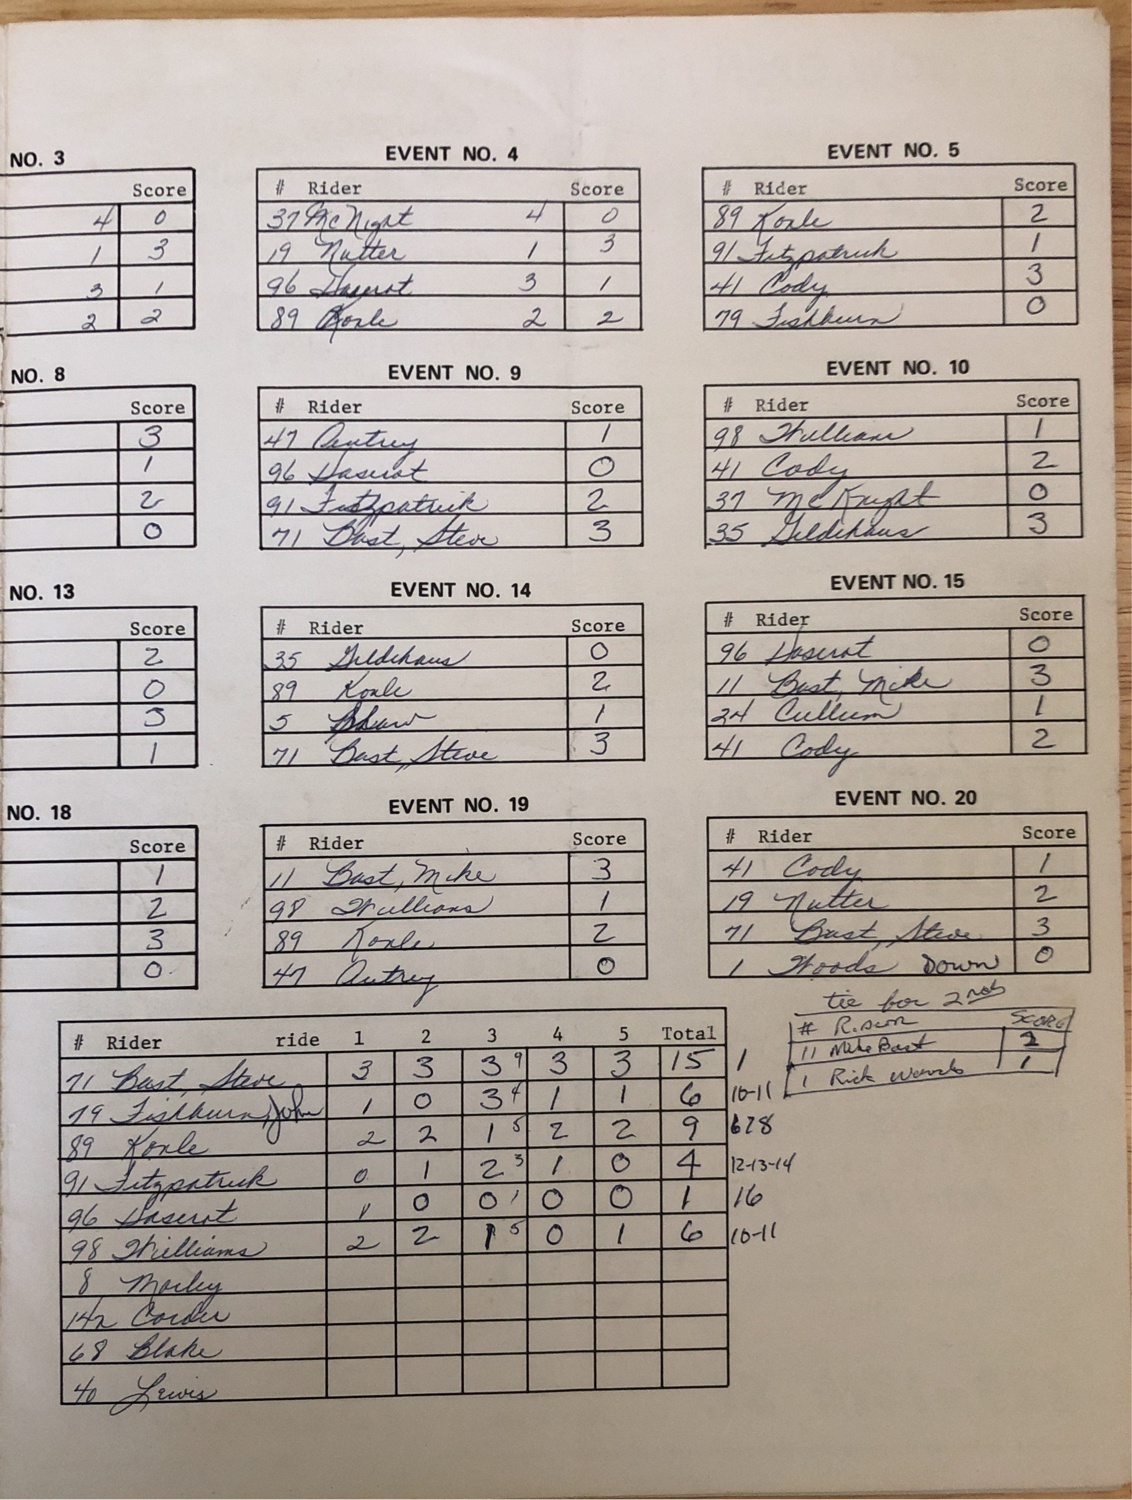 NO. 3
Score
4 0
1 3
3 1
2 2
EVENT NO. 4
# Rider Score
37 McNight 4 0
19 Nutter 1 3
96 Haserot 3 1
89 Konle 2 2
EVENT NO. 5
# Rider Score
89 Konle 2
91 Fitzpatrick 1
41 Cody 3
79 Fishburn 0
NO. 8
Score
3
1
2
0
EVENT NO. 9
# Rider Score
47 Autrey 1
96 Haserot 0
91 Fitzpatrick 2
71 Bast, Steve 3
EVENT NO. 10
# Rider Score
98 Williams 1
41 Cody 2
37 McKnight 0
35 Gildehaus 3
NO. 13
Score
2
0
3
1
EVENT NO. 14
# Rider Score
35 Gildehaus 0
89 Konle 2
5 Shaw 1
71 Bast, Steve 3
EVENT NO. 15
# Rider Score
96 Haserot 0
11 Bast, Mike 3
24 Cullum 1
41 Cody 2
NO. 18
Score
1
2
3
0
EVENT NO. 19
# Rider Score
11 Bast, Mike 3
98 Williams 1
89 Konle 2
47 Autrey 0
EVENT NO. 20
# Rider Score
41 Cody 1
19 Nutter 2
71 Bast, Steve 3
1 Woods Down 0
tie for 2nd
# SCORE
11 Mike Bast 2
1 Rick Woods 1
# Rider ride 1 2 3 4 5 Total
71 Bast, Steve 3 3 3 9 3 3 15 1
79 Fishburn, John 1 0 3 4 1 1 6 10-11
89 Konle 2 2 1 5 2 2 9 678
91 Fitzpatrick 0 1 2 3 1 0 4 12-13-14
96 Haserot 1 0 0 1 0 0 1 16
98 Williams 2 2 1 5 0 1 6 10-11
8 Morley
Corder
68 Blake
40 Lewis